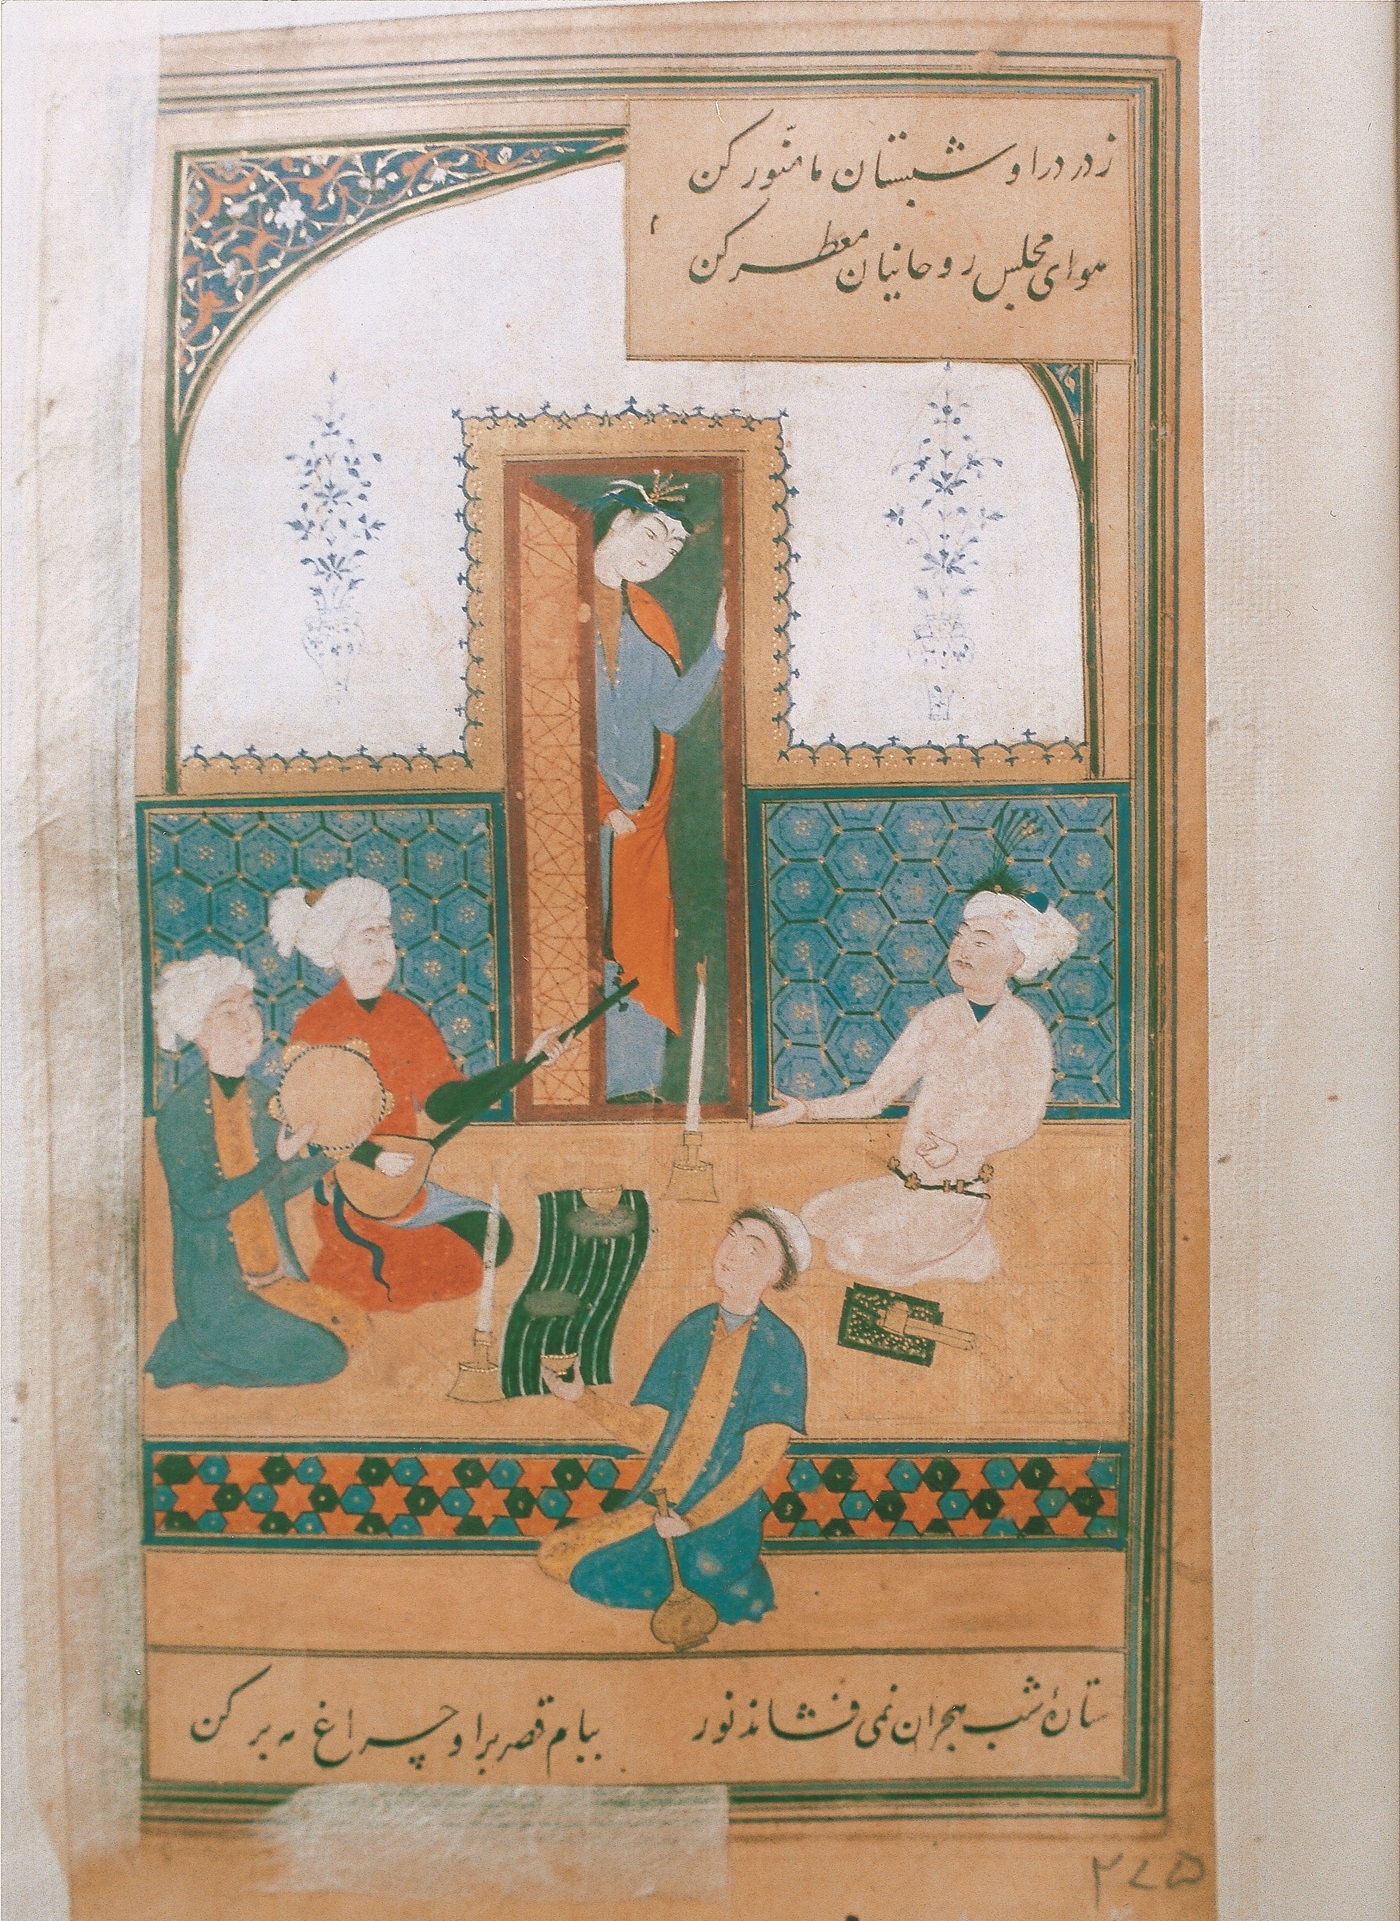 ز در درا و شبستان ما منّور کن
هوای مجلس روحانیان معطر کن
ستارهٔ شب هجران نمی فشاند نور
ببام قصر برا و چراغ مه بر کن
۲۷۵